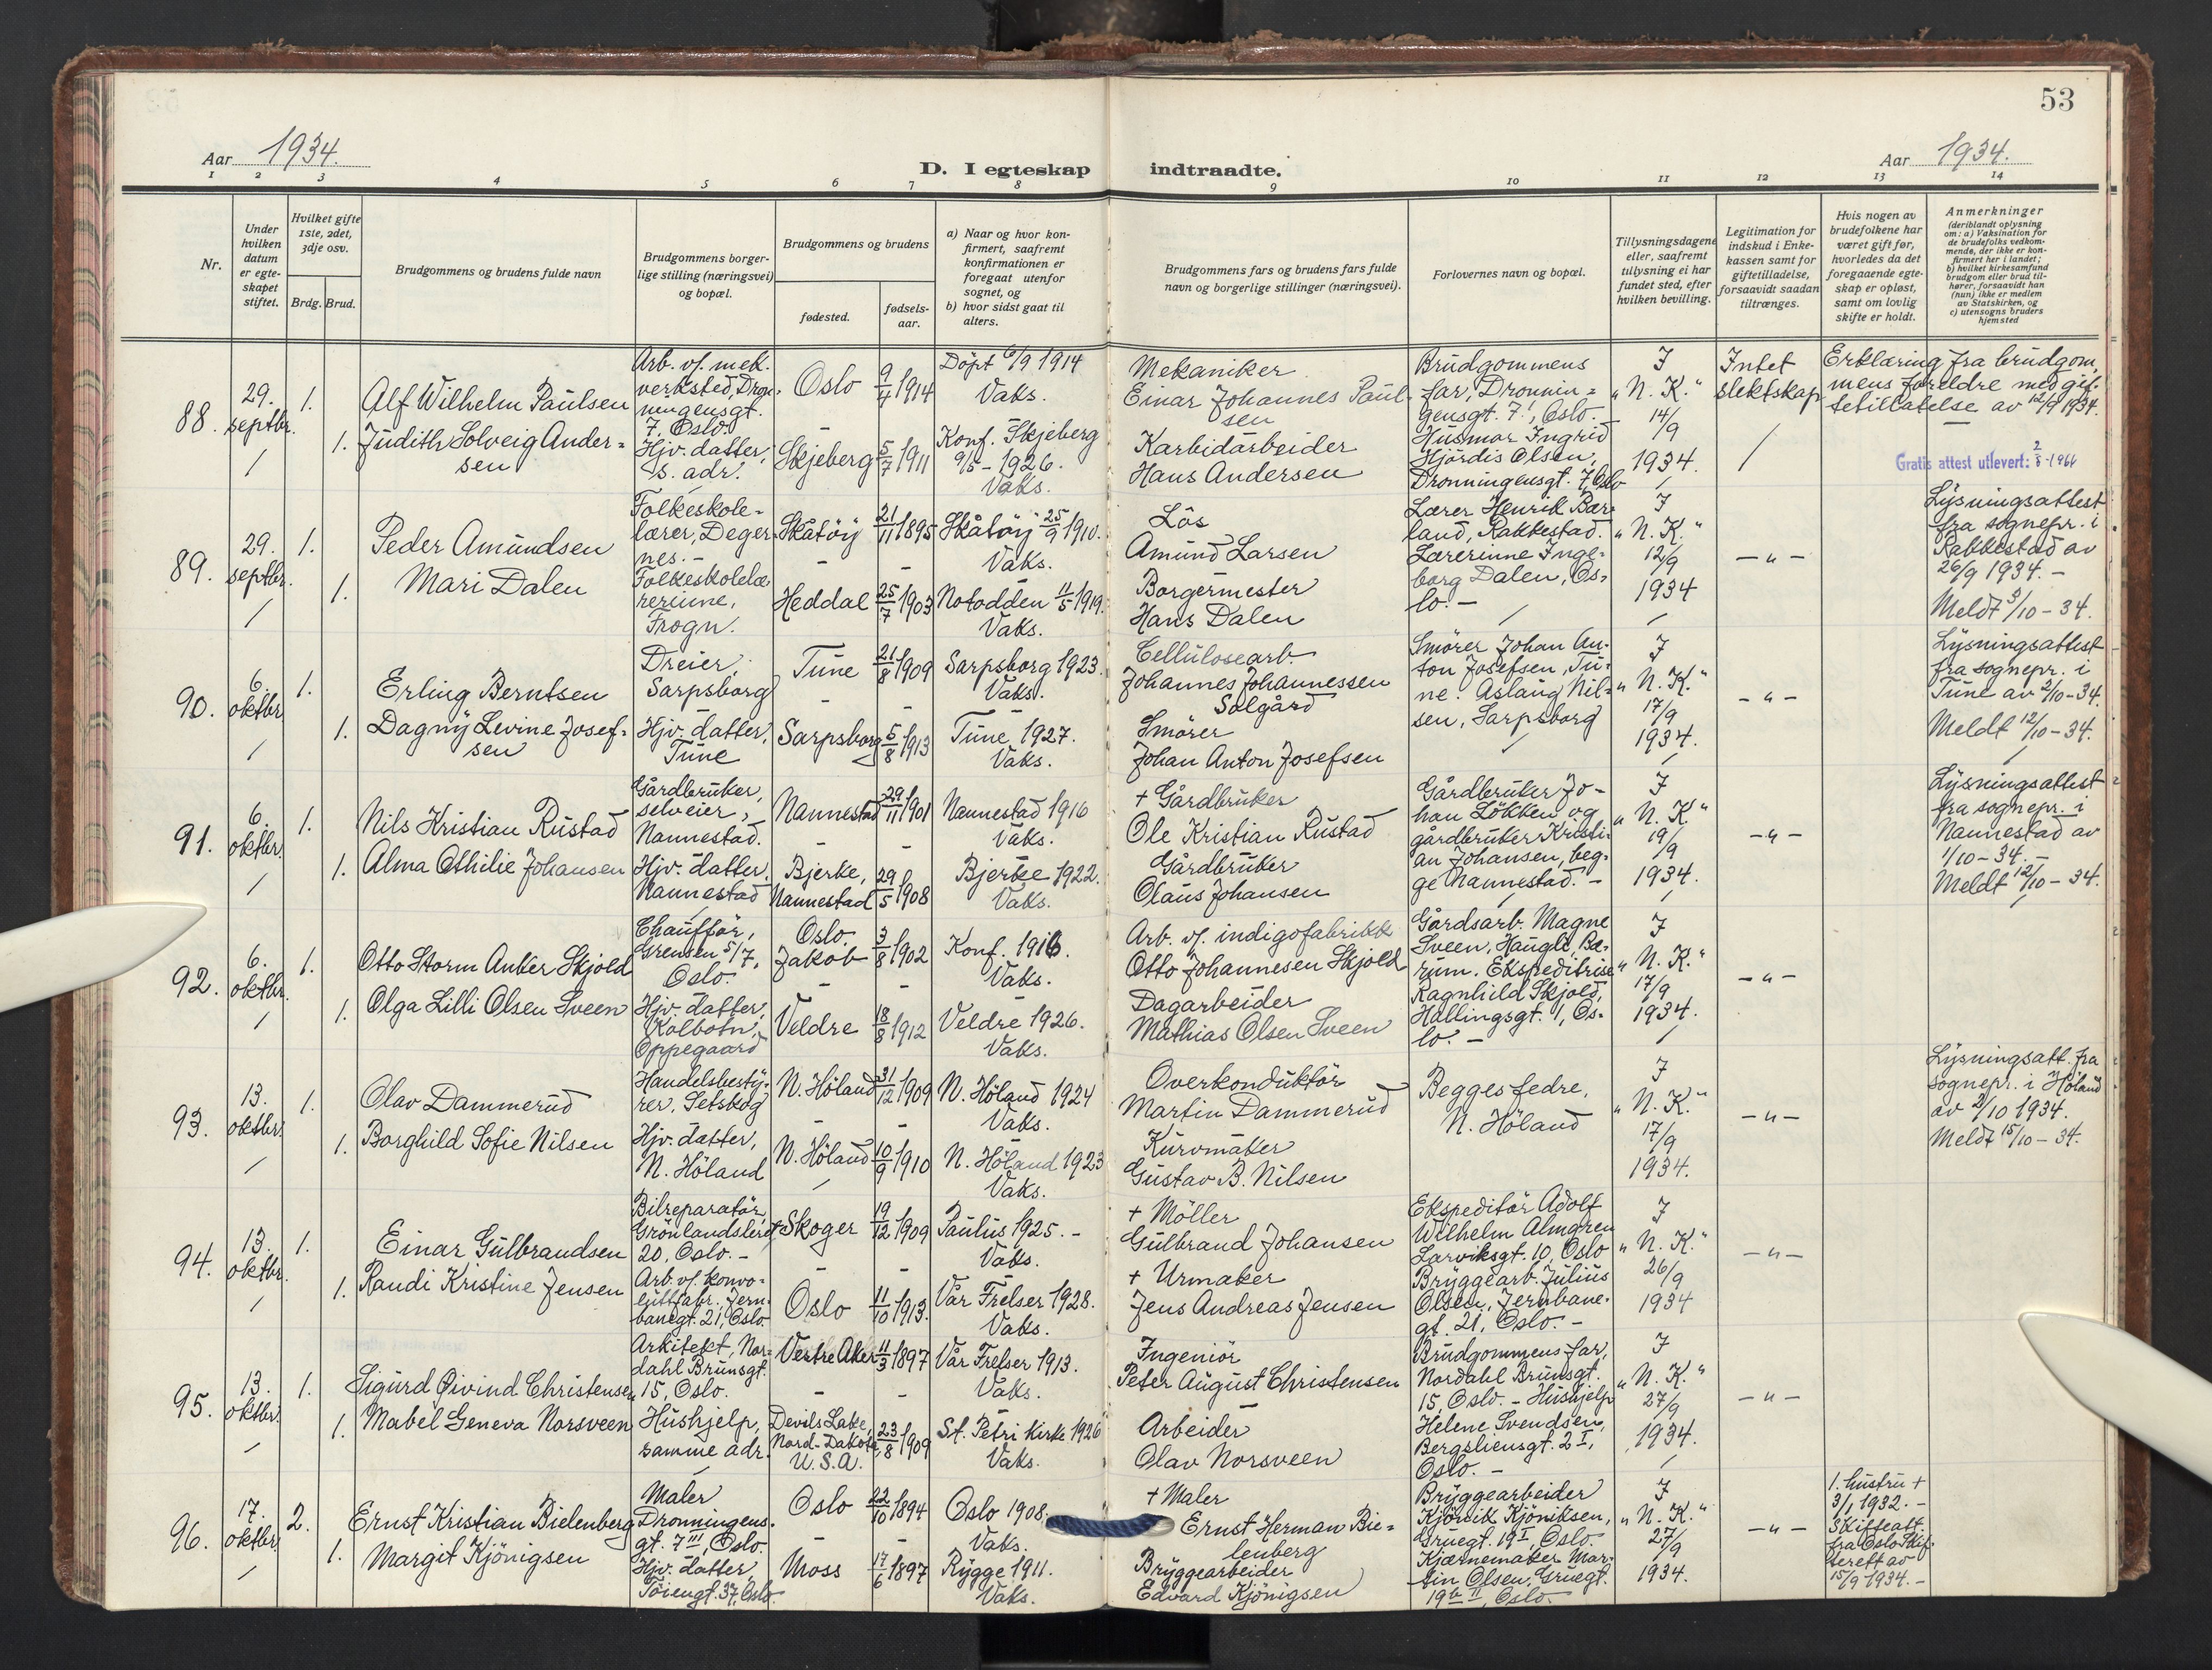 53
Aar 1934.
D. I egteskap indtraadte.
Aar 1934.
1 2 3 4 5 6 7 8 9 10 11 12 13 14
Nr.
Under hvilken datum er egte-skapet stiftet.
Hvilket gifte 1ste, 2det, 3dje osv.
Brdg. Brud.
Brudgommens og brudens fulde navn
Brudgommens borger-lige stilling (næringsvei) og bopæl.
Brudgommens og brudens
fødested.
fødsels-aar.
a) Naar og hvor kon-firmert, saafremt konfirmationen er foregaat utenfor sognet, og
b) hvor sidst gaat til alters.
Brudgommens fars og brudens fars fulde navn og borgerlige stillinger (næringsvei).
Forlovernes navn og bopæl.
Tillysningsdagene eller, saafremt tillysning ei har fundet sted, efter hvilken bevilling.
Legitimation for indskud i Enke-kassen samt for giftetilladelse, forsaavidt saadan tiltrænges.
Hvis nogen av brudefolkene har været gift før, hvorledes da det foregaaende egte-skap er opløst, samt om lovlig skifte er holdt.
Anmerkninger (deriblandt oplysning om: a) Vaksination for de brudefolks vedkom-mende, der ikke er kon-firmert her i landet; b) hvilket kirkesamfund brudgom eller brud til-hører, forsaavidt han (hun) ikke er medlem av Statskirken, og c) utensogns bruders hjemsted
88.
29. septbr.
1.
Alf Wilhelm Paulsen
Arb. v/ mek. verksted, Dron-ningensgt. 7, Oslo.
Oslo
9/4 1914
Döpt 6/9 1914
Vaks.
Mekaniker
Einar Johannes Paul-sen
Brudgommens far, Dronnin-gensgt. 7!, Oslo
I "N. K." 14/9 1934.
Intet slektskap
Erklæring fra brudgom-mens foreldre med gif-tetillatelse av 12/9 1934.
1. Judith Solveig Ander-sen
Hjv. datter, s. adr.
Skjeberg
5/7 1911
Konf. Skjeberg 9/5 - 1926.
Vaks.
Karbidarbeider
Hans Andersen
Husmor Ingrid Hjördis Olsen, Dronningensgt. 7, Oslo
Gratis attest utlevert: 2/8-1966
89.
29. septbr.
1.
Peder Amundsen
Folkeskole-lærer, Deger-nes.-
Skåtöy
21/11 1895
Skåtöy 25/9 1910.
Vaks.
Lös
Amund Larsen
Lærer Henrik Bær-land, Rakkestad.
I "N. K." 12/9 1934
- " -
Lysningsattest fra sognepr. i Rakkestad av 26/9 1934.-
Meldt 3/10 - 34.
1. Mari Dalen
Folkeskolelæ-rerinne, Frogn.
Heddal
25/7 1903
Notodden 11/5 1919.
Vaks.
Borgermester
Hans Dalen
Lærerinne Inge-borg Dalen, Os-lo.-
90.
6. oktbr.
1.
Erling Berntsen
Dreier, Sarpsborg
Tune
21/8 1909
Sarpsborg 1923.
Vaks.
Cellulosearb.
Johannes Johannessen Solgård
Smörer Johan An-ton Josefsen, Tu-ne. Aslaug Nil-sen, Sarpsborg
I "N. K." 17/9 1934.
- " -
Lysningsattest fra sognepr. i Tune av 2/10-34.
Meldt 12/10 - 34.
1. Dagny Levine Josef-sen
Hjv. datter, Tune
Sarpsborg
5/8 1913
Tune 1927.
Vaks.
Smörer
Johan Anton Josefsen
91.
6. oktbr.
1.
Nils Kristian Rustad
Gårdbruker, selveier, Nannestad.
Nannestad
29/11 1901
Nannestad 1916
Vaks.
+ Gårdbruker
Ole Kristian Rustad
Gårdbruker Jo-han Lökken og gårdbruker Kristi-an Johansen, beg-ge Nannestad.-
I "N. K." 19/9 1934.
- " -
Lysningsattest fra sognepr. i Nannestad av 1/10 - 34.-
Meldt 12/10 - 34.
1. Alma Othilie Johansen
Hjv. datter, Nannestad
Bjerke, Nannestad
29/5 1908
Bjerke 1922.
Vaks.
Gårdbruker
Olaus Johansen
92.
6. oktbr.
1.
Otto Storm Anker Skjold
Chaufför, Grensen 5/7, Oslo.
Oslo. Jakob
3/8 1902
Konf. 1916.
Vaks.
Arb. v/ indigofabrikk
Otto Johannesen Skjold
Gårdsarb. Magne Sveen, Haugli, Bæ-rum. Ekspeditrise Ragnhild Skjold, Hallingsgt. 1, Os-lo.-
I "N. K." 17/9 1934.
- " -
1. Olga Lilli Olsen Sveen
Hjv. datter, Kolbotn, Oppegaard
Veldre
18/8 1912
Veldre 1926.
Vaks.
Dagarbeider
Mathias Olsen Sveen
93.
13. oktbr.
1.
Olav Dammerud
Handelsbesty-rer, Setskog
N. Höland
31/12 1909
N. Höland 1924
Vaks.
Overkonduktör
Martin Dammerud
Begges fedre, N. Höland
I "N. K." 17/9 1934.
- " -
Lysningsatt. fra sognepr. i Höland av 2/10 1934.
Meldt 15/10 - 34.
1. Borghild Sofie Nilsen
Hjv. datter, N. Höland
N. Höland
10/9 1910
N. Höland 1923
Vaks.
Kurvmaker
Gustav B. Nilsen
94.
13. oktbr.
1.
Einar Gulbrandsen
Bilreparatör, Grönlandsleret 20, Oslo.-
Skoger
19/12 1909
Paulus 1925.-
Vaks.
+ Möller
Gulbrand Johansen
Ekspeditör Adolf Wilhelm Almgren Larviksgt. 10, Oslo
I "N. K." 26/9 1934
- " -
1. Randi Kristine Jensen
Arb. v/ konvo-luttfabr., Jern-banegt. 21, Oslo.
Oslo
11/10 1913.
Vår Frelser 1928.
Vaks.
+ Urmaker
Jens Andreas Jensen
Bryggearb. Julius Olsen, Jernbane-gt. 21, Oslo.-
95.
13. oktbr.
1.
Sigurd Øivind Christensen
Arkitekt, Nor-dahl Brunsgt. 15, Oslo.
Vestre Aker
11/3 1897
Vår Frelser 1913.
Vaks.
Ingeniör
Peter August Christensen
Brudgommens far, Nordahl Brunsgt. 15, Oslo. - Hushjelp Helene Svendsen, Bergsliensgt. 2 I, Oslo.-
I "N. K." 27/9 1934.
- " -
1. Mabel Geneva Norsveen
Hushjelp, samme adr.
Devils Lake, Nord-Dakota, U.S.A.
23/8 1909
St. Petri Kirke 1926
Vaks.
Arbeider
Olav Norsveen
96.
17. oktbr.
2.
Ernst Kristian Bielenberg
Maler Dronningens-gt. 7 III, Oslo.
Oslo
22/10 1894
Oslo 1908.
Vaks.
+ Maler
Ernst Herman Bie-lenberg
Bryggearbeider Kjönik Kjöniksen, Gruegt. 19 I, Oslo.
I "N. K." 27/9 1934.
- " -
1. hustru + 3/1 1932.-
Skifteatt. fra Oslo Skif-terett av 15/9 1934.-
1. Margit Kjönigsen
Hjv. datter, Töiengt. 37, Oslo.
Moss
17/6 1897
Rygge 1911.
Vaks.
Bryggearbeider
Edvard Kjönigsen
Kjærnemaker Mar-tin Olsen, Gruegt. 19 b II, Oslo.